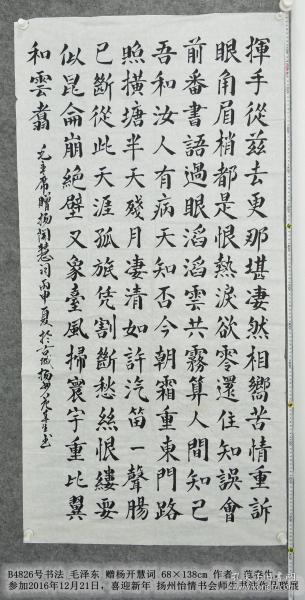 揮手從茲去更那堪凄然相嚮苦情重訴
眼角眉梢都是恨熱淚欲零還住知誤會
前番書語過眼滔滔雲共霧算人間知己
吾和汝人有病天知否今朝霜重東門路
照橫塘半天殘月凄清如許汽笛一聲腸
已斷從此天涯孤旅凭割斷愁絲恨縷要
似昆侖崩絕壁又象臺風掃寰宇重比翼
和雲翥
毛主席贈楊開慧詞丙申夏於京城揚州書
B4826号书法 毛泽东 赠杨开慧词 68×138cm 作者：
参加2016年12月21日，喜迎新年 扬州怡情书会师生书法作品联展